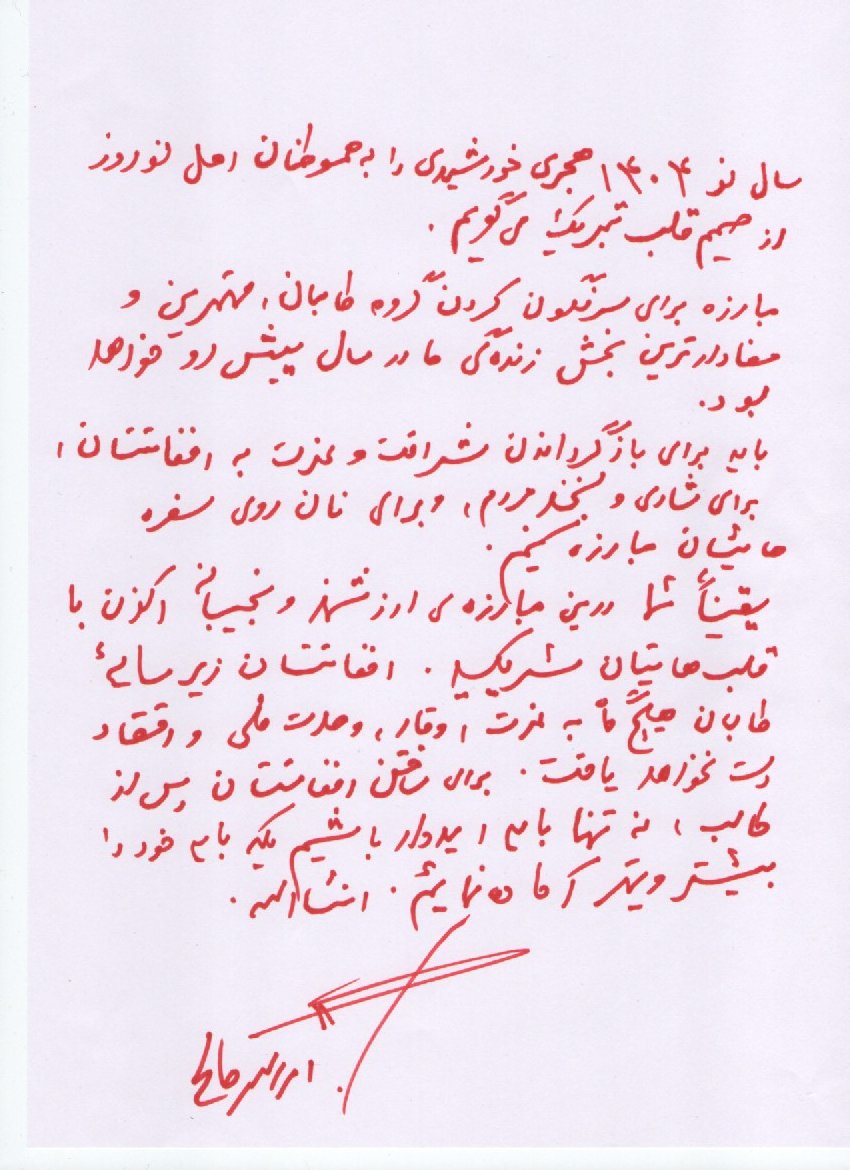 سال نو ۱۴۰۴ هجری خورشیدی را به هموطنان اهل نوروز
از صمیم قلب تبریک می‌گویم .
مبارزه برای سرنگون کردن گروه طالبان، مهمترین و
معنادارترین بخش زندگی ما در سال پیش رو خواهد
بود.
باید برای بازگرداندن شرافت و عزت به افغانستان ،
برای شادی و لبخند مردم ، و برای نان روی سفره
هایشان مبارزه کنیم .
یقیناً شما درین مبارزه‌ی ارزشمند و نجیبانه اکنون با
قلب‌هایتان شریکید . افغانستان زیر سایهٔ
طالبان هیچگاه به عزت ، وقار ، وحدت ملی و اقتصاد
دست نخواهد یافت . برای ساختن افغانستان پس از
طالب ، نه تنها باید امیدوار باشیم بلکه باید خود را
بیشتر و بهتر آماده نمائیم . انشاالله .
امرالله صالح